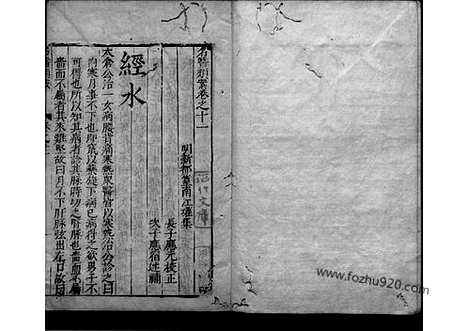 名醫類案卷之十一
明新都篁南江瓘集
長子應元校正
次子應宿述補
經水
太倉公治一女病腰背痛寒熱眾醫皆以寒熱治公診之曰
內寒月事不下也即竄以藥旋下病已病得之欲男子不
可得也所以知其病者診其脉時切之腎脉也嗇而不屬
嗇而不屬者其來難堅故曰月不下肝脉弦出左口故曰
www.fozhu920.com